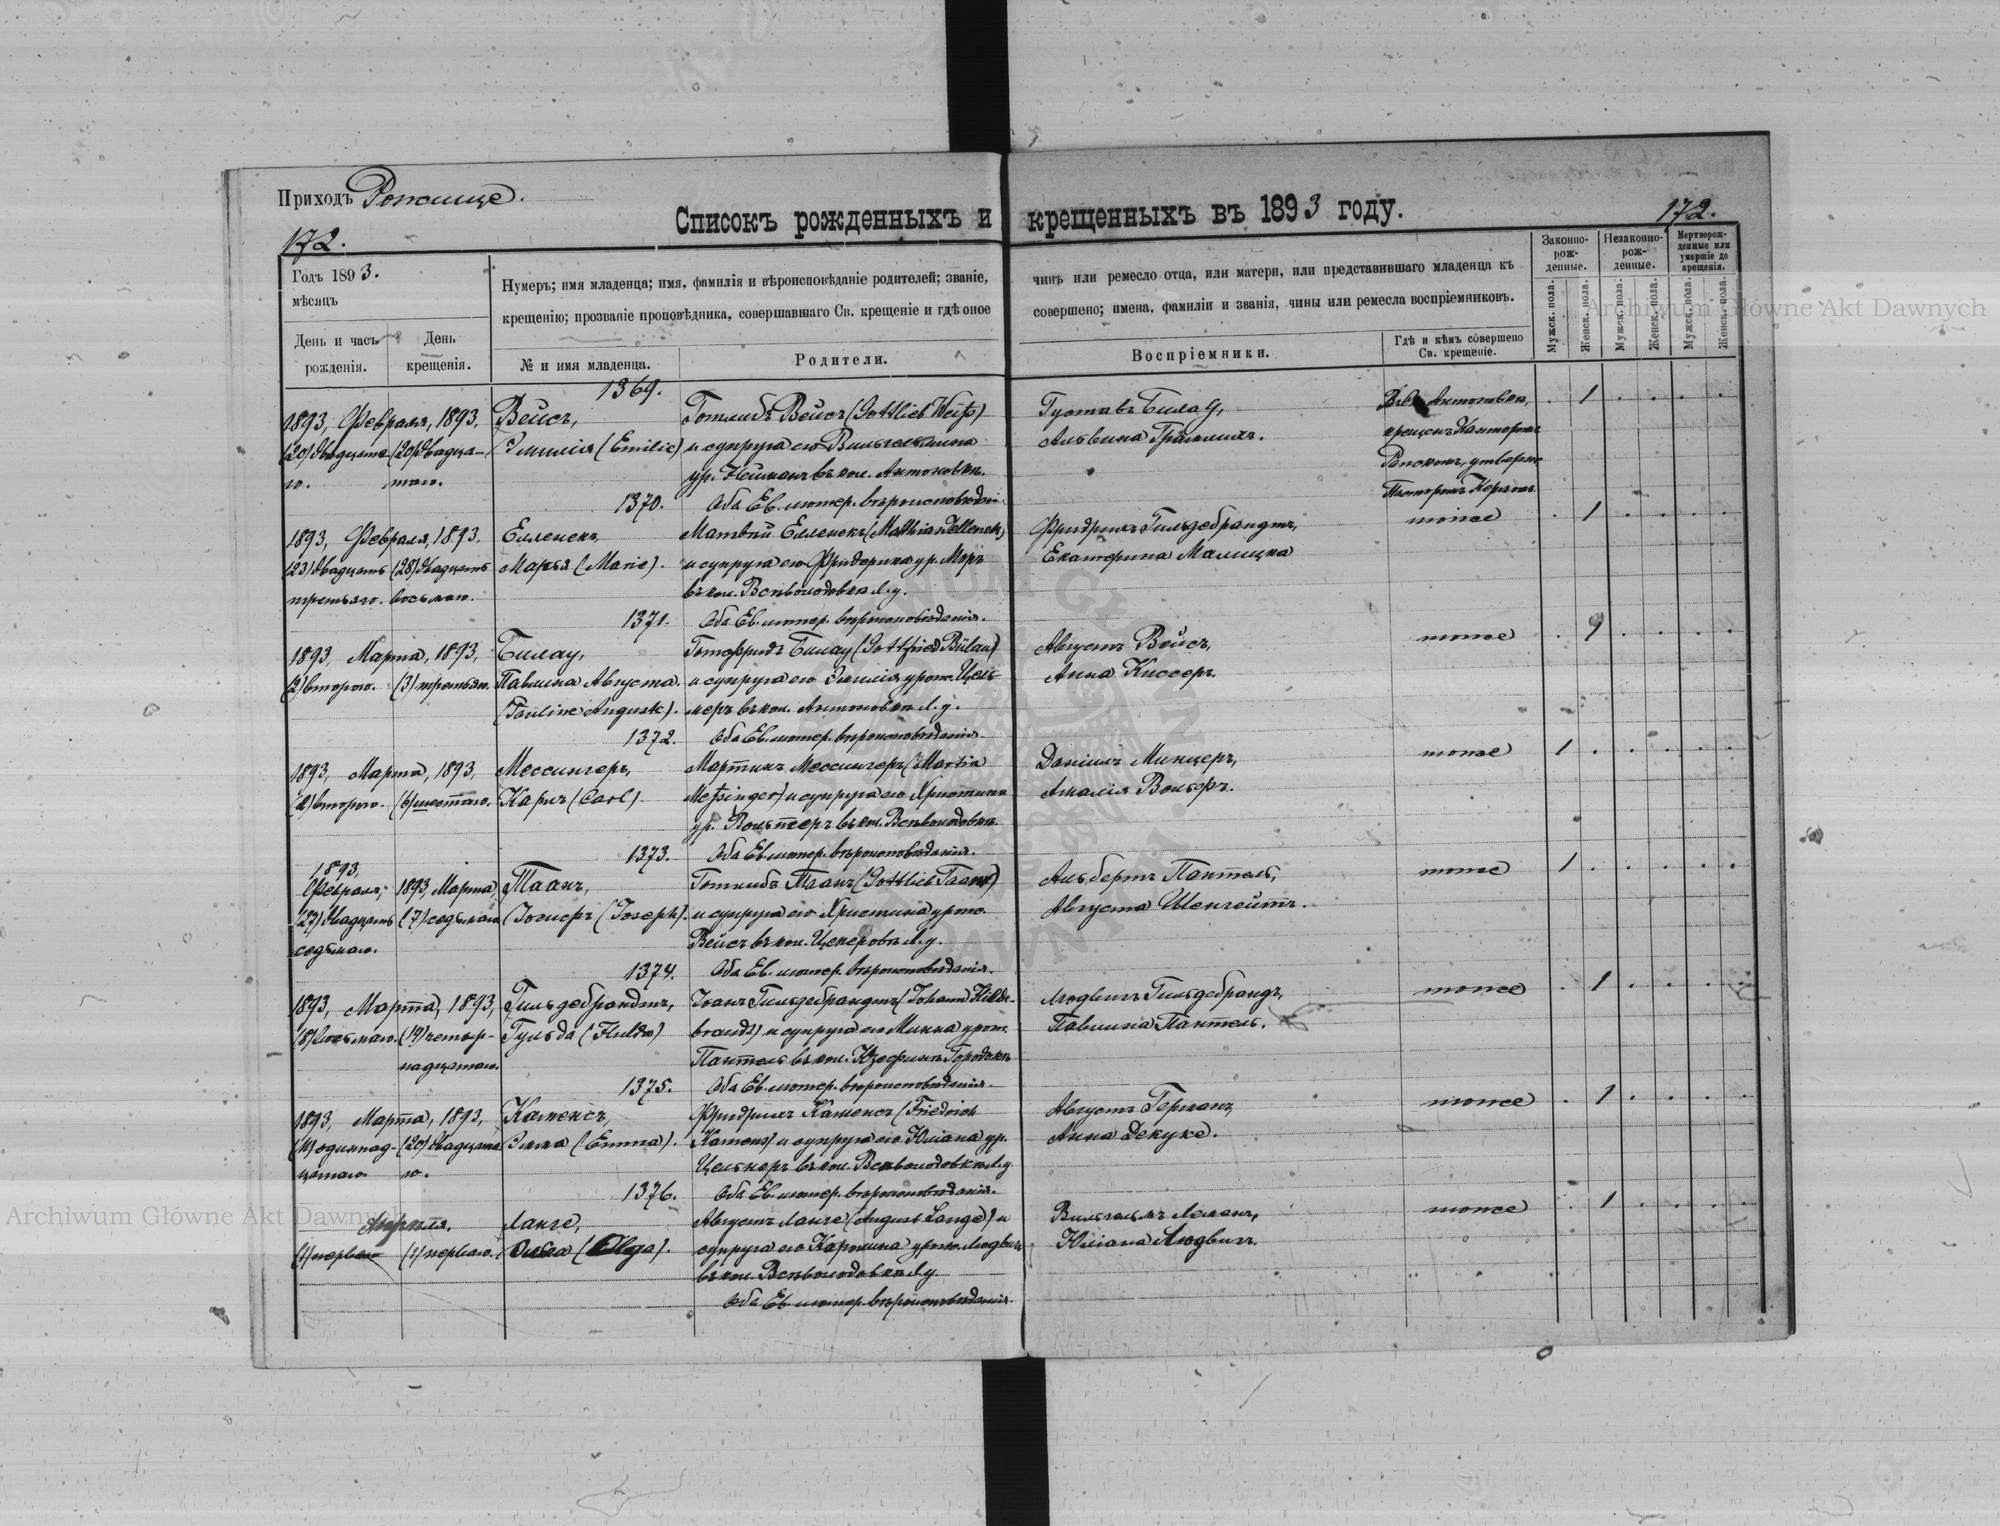 Приходъ Рожище.
Списокъ рожденныхъ и крещенныхъ въ 1893 году.
172.
172.
Годъ 1893.
мѣсяцъ
День и часъ рожденія.
День крещенія.
Нумеръ; имя младенца; имя, фамилія и вѣроисповѣданіе родителей; званіе, чинъ или ремесло отца, или матери, или представившаго младенца къ
крещенію; прозваніе проповѣдника, совершавшаго Св. крещеніе и гдѣ оное совершено; имена, фамиліи и званія, чины или ремесла воспріемниковъ.
№ и имя младенца.
Родители.
Воспріемники.
Гдѣ и кѣмъ совершено Св. крещеніе.
Законно-рож-денные.
Незаконно-рож-денные.
Мертворож-денные или умершіе до крещенія.
Мужск. пола.
Женск. пола.
Мужск. пола.
Женск. пола.
Мужск. пола.
Женск. пола.
1369.
1893, Февраля, 1893,
(20) двадцата- (20) двадца-
го. таго.
Вейсъ,
Эмилія (Emilie)
Готлибъ Вейсъ (Gottlieb Weiß)
и супруга его Вильгельмина
ур. Нейманъ въ кол. Антоновкѣ.
Оба Ев. лютер. вѣроисповѣданія
Густавъ Билау,
Альвина Грамлихъ.
Въ к. Антоновкѣ,
крещенъ Канторомъ
утвержд.
Пасторомъ Керномъ
1
1370.
1893, Февраля, 1893.
(23) двадцать (28) двадцать
третьяго. восьмаго.
Елленекъ,
Марья (Marie).
Матвѣй Елленекъ (Mathias Jellenek)
и супруга его Фридерика ур. Моръ
въ кол. Всеволодовкѣ Л. у.
Оба Ев. лютер. вѣроисповѣданія.
Фридрихъ Гильдебрандтъ,
Екатерина Малицка
тоже
1
1371.
1893, Марта, 1893,
(2) второго. (3) третьяго.
Билау,
Павлина Августа.
(Pauline Auguste).
Готфридъ Билау (Gottfried Bülau)
и супруга его Эмилія урож. Цель-
меръ въ кол. Антоновкѣ Л. у.
Оба Ев. лютер. вѣроисповѣданія.
Августъ Вейсъ,
Анна Киссеръ.
тоже
1
1372.
1893, Марта, 1893,
(2) второго. (6) шестаго.
Мессингеръ,
Карлъ (Carl)
Мартинъ Мессингеръ (Martin
Meßinger) и супруга его Христина
ур. Вольтеръ въ кол. Всеволодовкѣ.
Оба Ев. лютер. вѣроисповѣданія.
Даніилъ Минцеръ,
Амалія Вольфъ.
тоже
1
1373.
1893,
Февраля, 1893 Марта
(27) двадцать (7) седьмаго
седьмаго.
Таанъ,
Іосифъ (Joseph).
Готлибъ Таанъ (Gottlieb Taan)
и супруга его Христина урож.
Вейсъ въ кол. Цеперовкѣ Л. у.
Оба Ев. лютер. вѣроисповѣданія.
Альбертъ Пантель,
Августа Шенгейтъ.
тоже
1
1374.
1893, Марта, 1893,
(8) восьмаго. (14) четыр-
надцатаго.
Гильдебрандтъ,
Гульда (Hulda)
Іоанъ Гильдебрандтъ (Johann Hilde-
brandt) и супруга его Минна урож.
Пантель въ кол. Юзефинъ Городокъ
Оба Ев. лютер. вѣроисповѣданія.
Людвигъ Гильдебрандъ,
Павлина Пантель.
тоже
1
1375.
1893, Марта, 1893,
(11) одиннад- (20) двадцата-
цатаго го.
Каменсъ,
Эмма (Emma).
Фридрихъ Каменсъ (Friedrich
Kamens) и супруга его Юліана ур.
Цельнеръ въ кол. Всеволодовкѣ Л. у.
Оба Ев. лютер. вѣроисповѣданія.
Августъ Германъ,
Анна Декуке.
тоже
1
1376.
Апрѣля.
(1) перваго (1) перваго.
Ланге,
Ольга (Olga).
Августъ Ланге (August Lange) и
супруга его Каролина урож. Людвигъ
въ кол. Всеволодовкѣ Л. у
Оба Ев. лютер. вѣроисповѣданія.
Вильгельмъ Леманъ,
Юліана Людвигъ.
тоже
1
Archiwum Główne Akt Dawnych
Archiwum Główne Akt Dawnych